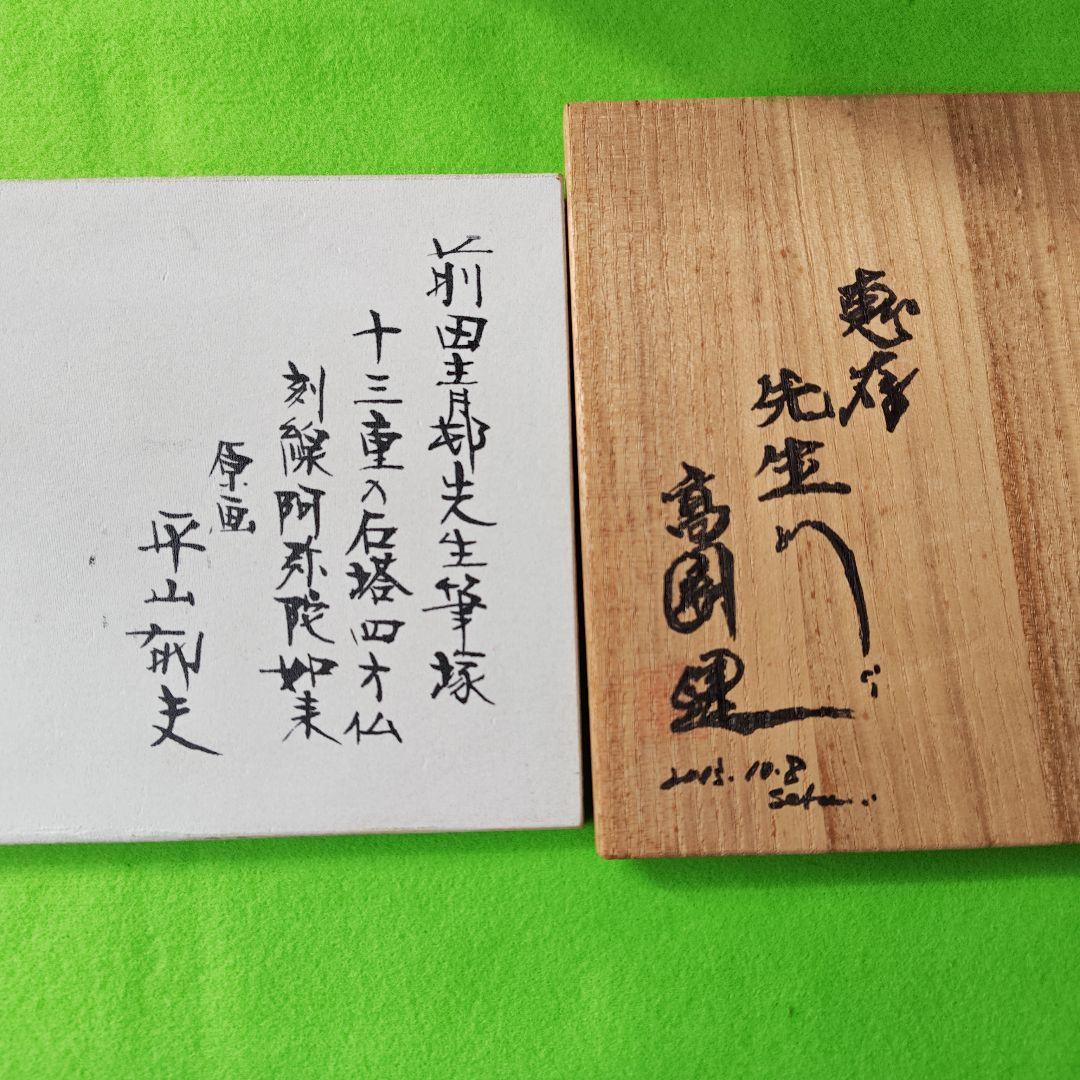 前田青邨先生筆塚
十三重の石塔四方仏
刻線阿弥陀如来
原画
平山郁夫
恵存
先生
高園
10.8